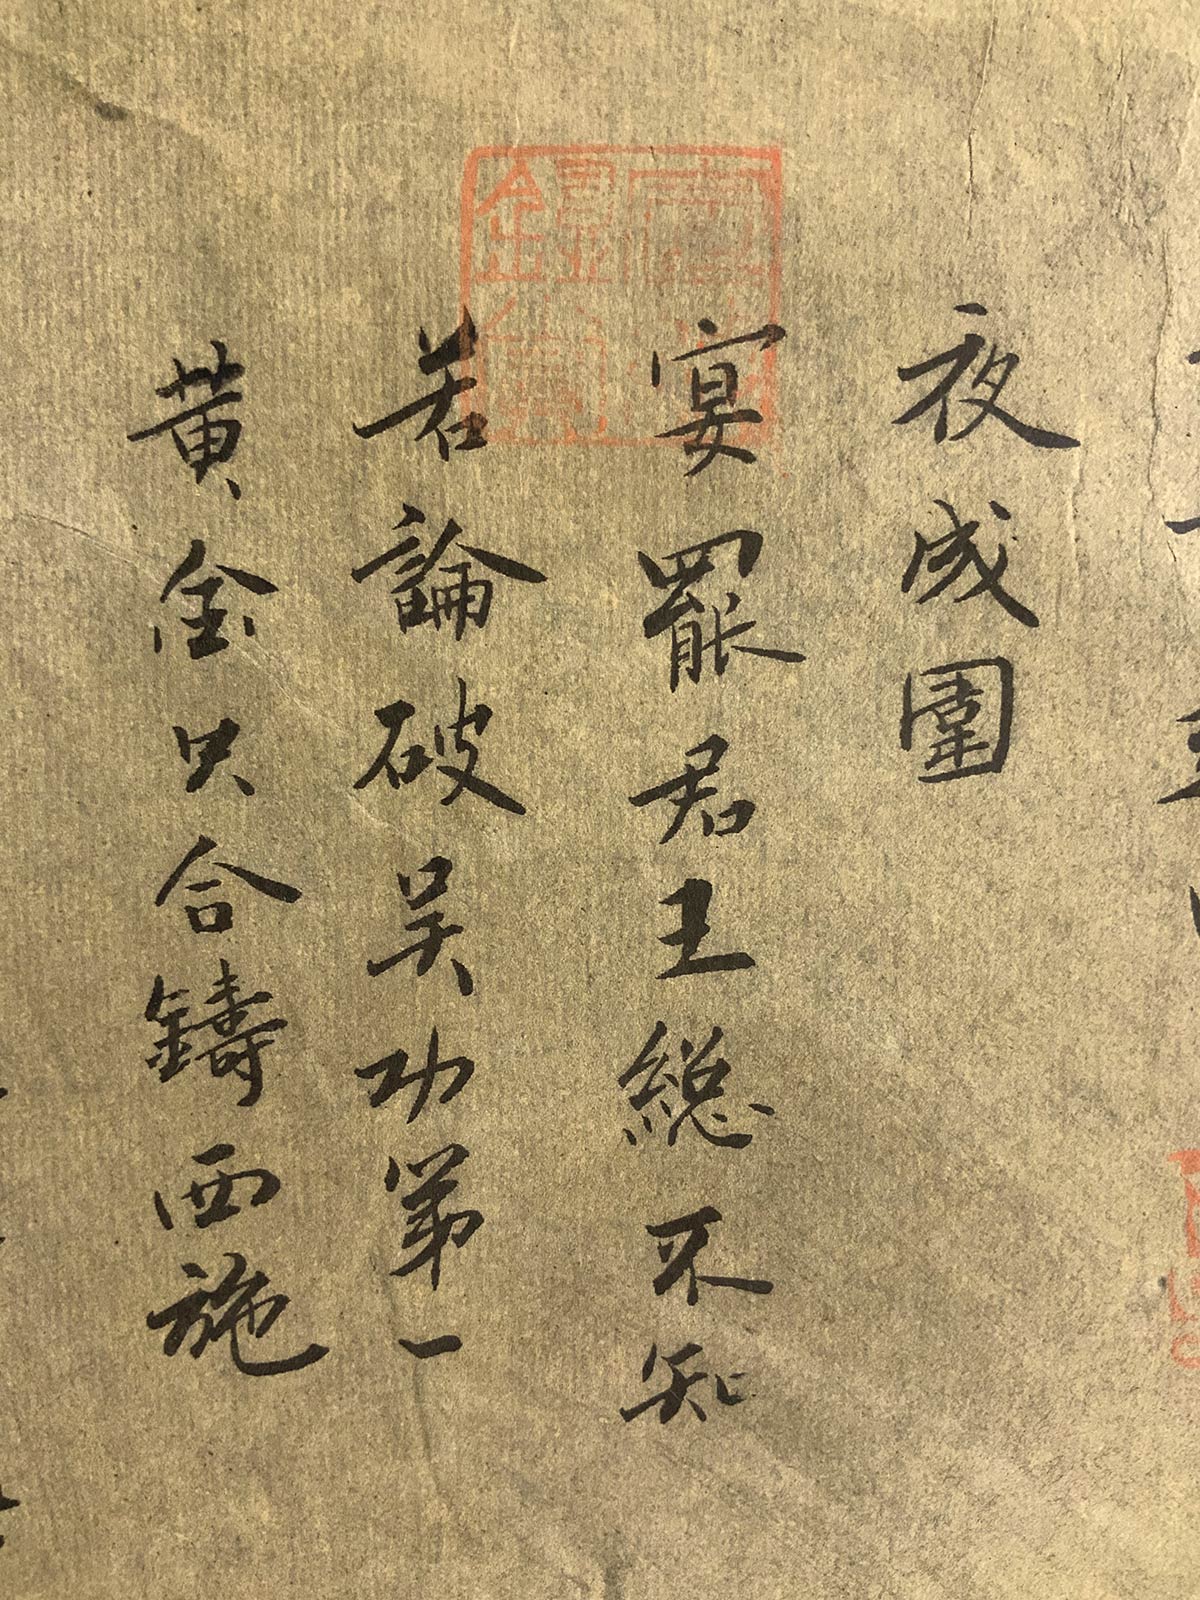 夜成圍
宴罷君王総不知
若論破吴功第一
黄金只合鑄西施